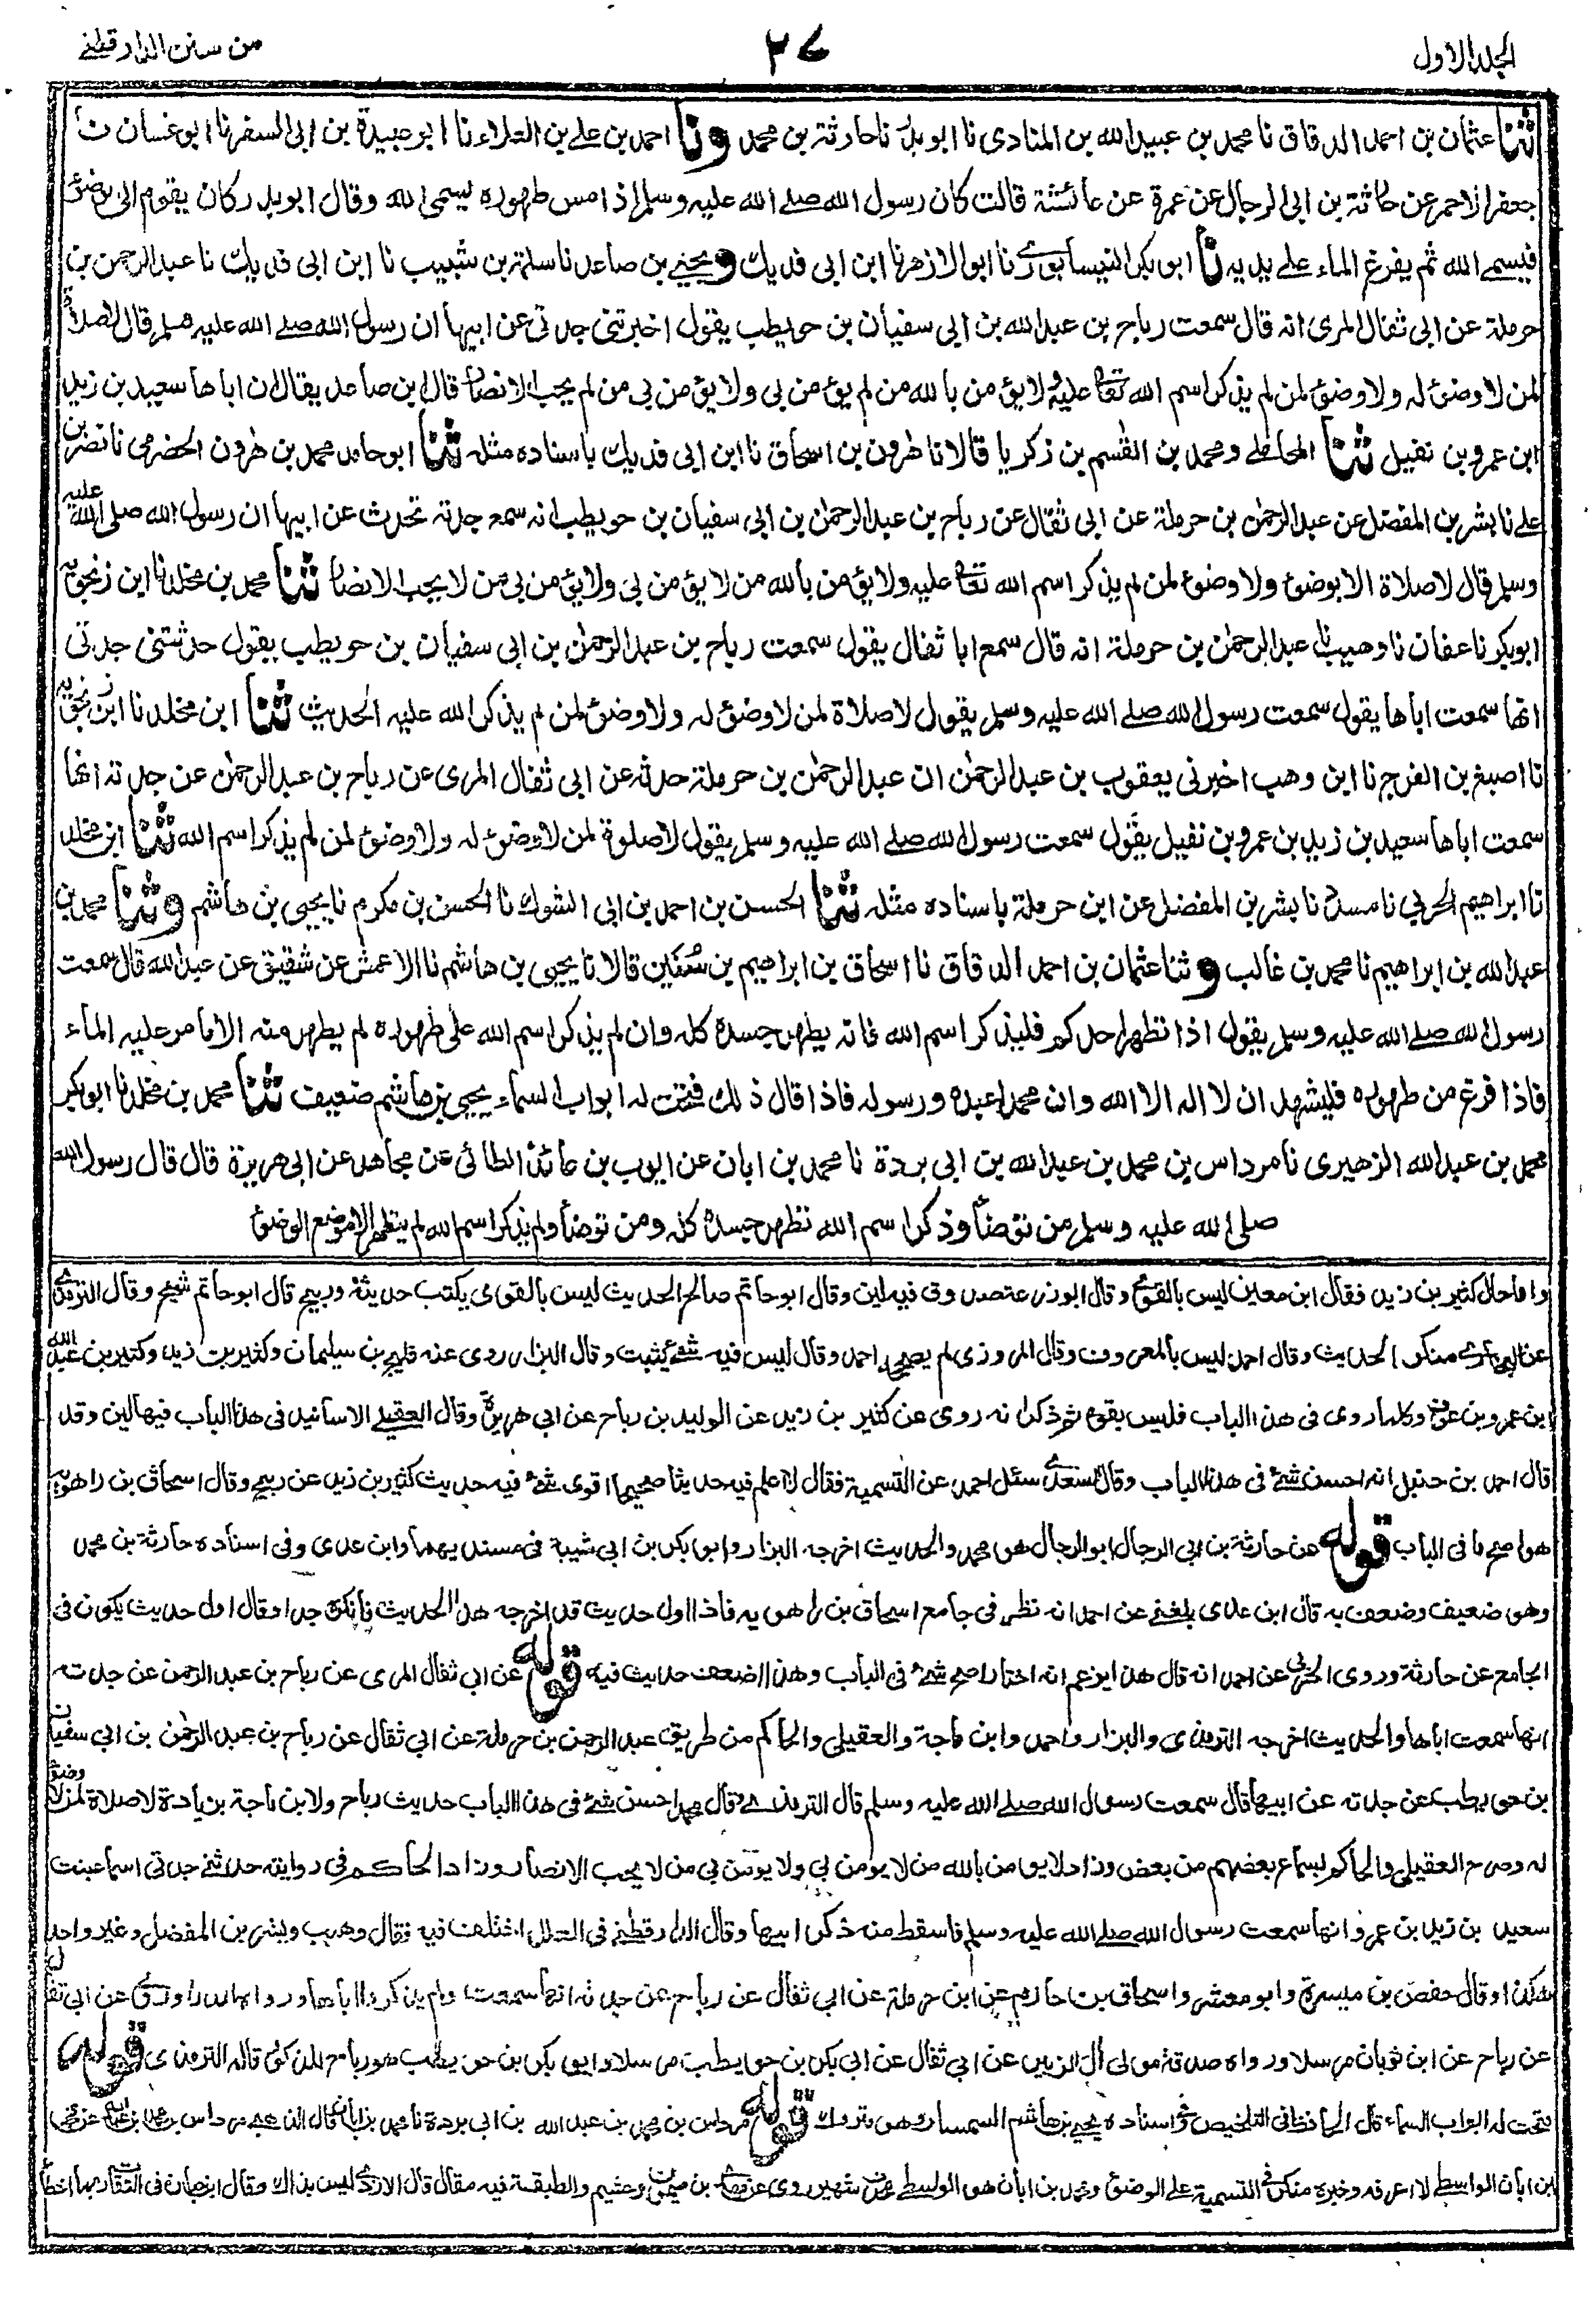 المجلد الاول
٢٧
من سنن الدارقطنے
ثنا عثمان بن احمد الدقاق نا محمد بن عبيد الله بن المنادى نا ابو بدر نا حارثة بن محمد ونا احمد بن علے بن العلاء نا ابو عبيدة بن ابى السفر نا ابو غسان نا
جعفر الاحمر عن حارثة بن ابى الرجال عن عمرة عن عائشة قالت كان رسول الله صلے الله عليه وسلم اذا مس طهوره يسمى الله وقال ابو بدر كان يقوم الى الوضوء
فيسمے الله ثم يفرغ الماء علے يديه نا ابو بكر النيسابورے نا ابو الازهر نا ابن ابى فديك ويحيے بن صاعد نا سلمة بن شبيب نا ابن ابى فديك نا عبد الرحمن بن
حرملة عن ابى ثفال المرى انه قال سمعت رباح بن عبد الله بن ابى سفيان بن حويطب يقول اخبرتنى جدتى عن ابيها ان رسول الله صلے الله عليه وسلم قال لا صلاة
لمن لا وضوء له ولا وضوء لمن لم يذكر اسم الله تعالى عليه ولا يؤمن بالله من لم يؤمن بى ولا يؤمن بى من لم يحب الانصار قال ابن صاعد يقال ان اباها سعيد بن زيد
ابن عمرو بن نفيل ثنا المحاملے ومحمد بن القسم بن زكريا قالا نا هرون بن اسحاق نا ابن ابى فديك باسناده مثله ثنا ابو حامد محمد بن هرون الحضرمى نا نصر بن
علے نا بشر بن المفضل عن عبد الرحمٰن بن حرملة عن ابى ثفال عن رباح بن عبد الرحمٰن بن ابى سفيان بن حويطب انه سمع جدته تحدث عن ابيها ان رسول الله صلى الله عليه
وسلم قال لا صلاة الا بوضوء ولا وضوء لمن لم يذكر اسم الله تعالى عليه ولا يؤمن بالله من لا يؤمن بى ولا يؤمن بى من لا يحب الانصار ثنا محمد بن مخلد نا ابن زنجويه
ابو بكر نا عفان نا وهيب نا عبد الرحمٰن بن حرملة انه قال سمع ابا ثفال يقول سمعت رباح بن عبد الرحمٰن بن ابى سفيان بن حويطب يقول حدثتنى جدتى
انها سمعت اباها يقول سمعت رسول الله صلے الله عليه وسلم يقول لا صلاة لمن لا وضوء له ولا وضوء لمن لم يذكر الله عليه الحديث ثنا ابن مخلد نا ابن زنجويه
نا اصبغ بن الفرج نا ابن وهب اخبرنى يعقوب بن عبد الرحمٰن ان عبد الرحمٰن بن حرملة حدثه عن ابى ثفال المرى عن رباح بن عبد الرحمٰن عن جدته انها
سمعت اباها سعيد بن زيد بن عمرو بن نفيل يقول سمعت رسول الله صلے الله عليه وسلم يقول لا صلوة لمن لا وضوء له ولا وضوء لمن لم يذكر اسم الله ثنا ابن مخلد
نا ابراهيم الحربي نا مسدد نا بشر بن المفضل عن ابن حرملة باسناده مثله ثنا الحسن بن احمد بن ابى الشوك نا الحسن بن مكرم نا يحيى بن هاشم وثنا محمد بن
عبد الله بن ابراهيم نا محمد بن غالب وثنا عثمان بن احمد الدقاق نا اسحاق بن ابراهيم بن سُنَين قالا نا يحيى بن هاشم نا الاعمش عن شقيق عن عبد الله قال سمعت
رسول الله صلے الله عليه وسلم يقول اذا تطهر احدكم فليذكر اسم الله فانه يطهر جسده كله وان لم يذكر اسم الله على طهوره لم يطهر منه الا ما مر عليه الماء
فاذا فرغ من طهوره فليشهد ان لا اله الا الله وان محمدا عبده ورسوله فاذا قال ذلك فتحت له ابواب السماء يحيى بن هاشم ضعيف ثنا محمد بن مخلد نا ابو بكر
محمد بن عبد الله الزهيرى نا مرداس بن محمد بن عبد الله بن ابى بردة نا محمد بن ابان عن ايوب بن عائذ الطائى عن مجاهد عن ابى هريرة قال قال رسول الله
صلى الله عليه وسلم من توضأ وذكر اسم الله تطهر جسده كله ومن توضأ ولم يذكر اسم الله لم يتطهر الا موضع الوضوء
واما حال كثير بن زيد فقال ابن معين ليس بالقوى وقال ابو زرعة صدوق فيه لين وقال ابو حاتم صالح الحديث ليس بالقوى يكتب حديثه وربيح قال ابو حاتم شيخ وقال الترمذے
عن البخارے منكر الحديث وقال احمد ليس بالمعروف وقال المروزى لم يصححه احمد وقال ليس فيه شئ يثبت وقال البزار روى عنه فليح بن سليمان وكثير بن زيد وكثير بن عبد الله
ابن عمرو بن عوف وكلما روى فى هذا الباب فليس بقوى ثم ذكر انه روى عن كثير بن زيد عن الوليد بن رباح عن ابى هريرة وقال العقيلے الاسانيد فى هذا الباب فيها لين وقد
قال احمد بن حنبل انه احسن شئ فى هذا الباب وقال السعدے سئل احمد عن التسمية فقال لا اعلم فيه حديثا صحيحا اقوى شئ فيه حديث كثير بن زيد عن ربيح وقال اسحاق بن راهويه
هو اصح ما فى الباب قوله عن حارثة بن ابى الرجال ابو الرجال هو محمد والحديث اخرجه البزار وابو بكر بن ابى شيبة فى مسنديهما وابن عدى وفى اسناده حارثة بن محمد
وهو ضعيف وضعف به قال ابن عدى بلغنے عن احمد انه نظر فى جامع اسحاق بن راهويه فاذا اول حديث قد اخرجه هذا الحديث فانكره جدا وقال اول حديث يكون فى
الجامع عن حارثة وروى الحربى عن احمد انه قال هذا يزعم انه اختار اصح شئ فى الباب وهذا اضعف حديث فيه قوله عن ابى ثفال المرى عن رباح بن عبد الرحمن عن جدته
انها سمعت اباها والحديث اخرجه الترمذى والبزار واحمد وابن ماجة والعقيلى والحاكم من طريق عبد الرحمن بن حرملة عن ابى ثفال عن رباح بن عبد الرحمٰن بن ابى سفيان
بن حويطب عن جدته عن ابيها قال سمعت رسول الله صلے الله عليه وسلم قال الترمذے قال محمد احسن شئ فى هذا الباب حديث رباح ولابن ماجة بزيادة لا صلاة لمن لا وضوء
له وصرح العقيلى والحاكم بسماع بعضهم من بعض وزاد لا يؤمن بالله من لا يؤمن بى ولا يؤمن بى من لا يحب الانصار وزاد الحاكم فى روايته حدثتنے جدتى اسماء بنت
سعيد بن زيد بن عمرو انها سمعت رسول الله صلے الله عليه وسلم فاسقط منه ذكر ابيها وقال الدارقطنے فى العلل اختلف فيه فقال وهيب وبشر بن المفضل وغير واحد
هكذا وقال حفص بن ميسرة وابو معشر واسحاق بن حازم عن ابن حرملة عن ابى ثفال عن رباح عن جدته انها سمعت ولم يذكروا اباها ورواه الدراوردے عن ابى ثفال
عن رباح عن ابن ثوبان مرسلا ورواه صدقة مولى ال الزبير عن ابى ثفال عن ابى بكر بن حويطب مرسلا وابو بكر بن حويطب هو رباح المذكور قاله الترمذى قوله
فتحت له ابواب السماء قال الحافظ فى التلخيص فى اسناده يحيى بن هاشم السمسار وهو متروك قوله مرداس بن محمد بن عبد الله بن ابى بردة نا محمد بن ابان قال الذهبے مرداس بن محمد بن عبد الله عن محمد
بن ابان الواسطى لا اعرفه وخبره منكر فى التسمية على الوضوء ومحمد بن ابان هو الواسطے شهير روى عن بن ميمون وعثيم والطبقة فيه مقال قال الازدے ليس بذاك وقال ابن حبان فى الثقات ربما اخطأ